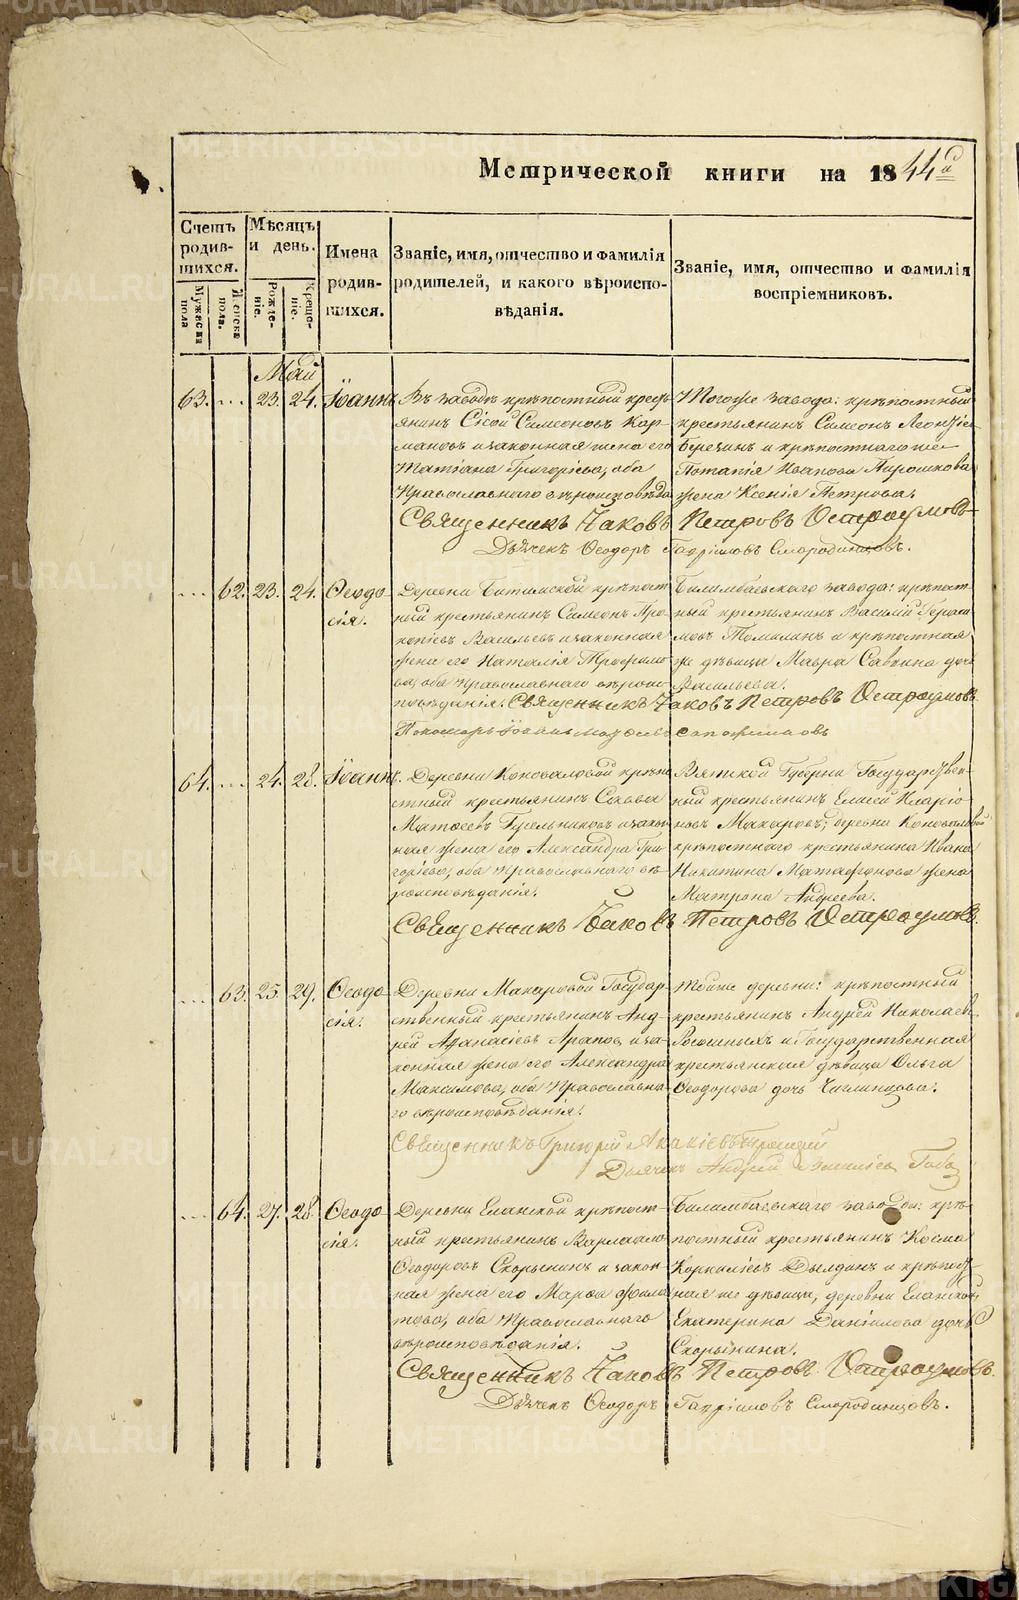 Метрической книги на 1844й
Счетъ родив-шихся.
Мужеска пола
Женска пола.
Мѣсяцъ и день.
Рожде-ніе.
Креще-ніе.
Имена родив-шихся.
Званіе, имя, отчество и фамилія родителей, и какого вѣроиспо-вѣданія.
Званіе, имя, отчество и фамилія воспріемниковъ.
Май
63. ... 23. 24. Іоаннъ
Въ заводѣ крѣпостный крест-
янинъ Сісой Симеоновъ Кар-
мановъ и законная жена его
Татіана Григорьева, оба
Православнаго вѣроисповѣда
Тогоже завода: крѣпостный
крестьянинъ Симеонъ Леонтіев
Березинъ и крѣпостнаго же
Потапія Иванова Пирожкова
жена Ксенія Петрова.
Священникъ Іаковъ Петровъ Остроумовъ
Дьячекъ Ѳеодоръ Гавріиловъ Смородинцовъ.
... 62. 23. 24. Ѳеодо-
сія.
Деревни Битимской крѣпост-
ный крестьянинъ Симеонъ Про-
копіевъ Васильевъ и законная
жена его Наталія Трофимо-
ва, оба Православнаго вѣроис-
повѣданія.
Билимбаевскаго завода: крѣпост-
ный крестьянинъ Василій Гераси
мовъ Томилинъ и крѣпостная
же дѣвица Мавра Саввина дочь
Васильева.
Священникъ Іаковъ Петровъ Остроумовъ.
Пономарь Іоаннъ
64. ... 24. 28. Іоаннъ.
Деревни Коноваловой крѣпо
стный крестьянинъ Савва
Матѳеевъ и закон
ная жена его Александра Гри-
горіева, оба Православнаго вѣ-
роисповѣданія.
Вятской Губерни Государствен-
ный крестьянинъ Елисей Иларіо-
новъ Макаровъ; деревни Коноваловой
крѣпостнаго крестьянина Ивана
Никитина Матафонова жена
Матрона Андреева.
Священникъ Іаковъ Петровъ Остроумовъ.
... 63. 25. 29. Ѳеодо-
сія.
Деревни Макаровой Государ-
ственный крестьянинъ Анд-
рей Аѳанасіевъ Араповъ и за-
конная жена его Александра
Максимова, оба Православна-
го вѣроисповѣданія.
Тойже деревни: крѣпостный
крестьянинъ Андрей Николаевъ
и Государственная
крестьянская дѣвица Ольга
Ѳеодорова дочь
Священникъ Григорій Акакіевъ
Дьячекъ Андрей
... 64. 27. 28. Ѳеодо
сія.
Деревни Еланской крѣпост-
ный крестьянинъ Варлаамъ
Ѳеодоровъ Скорынинъ и закон-
ная жена его Марѳа Фила
това, оба Православнаго
вѣроисповѣданія.
Билимбаевскаго завода: крѣ-
постный крестьянинъ Косма
Корниліевъ Дылдинъ и крѣпост
ная же дѣвица, деревни Еланской
Екатерина Даніилова дочь
Скорынина.
Священникъ Іаковъ Петровъ Остроумовъ.
Дьячекъ Ѳеодоръ Гавріиловъ Смородинцовъ.
METRIKI.GASO-URAL.RU